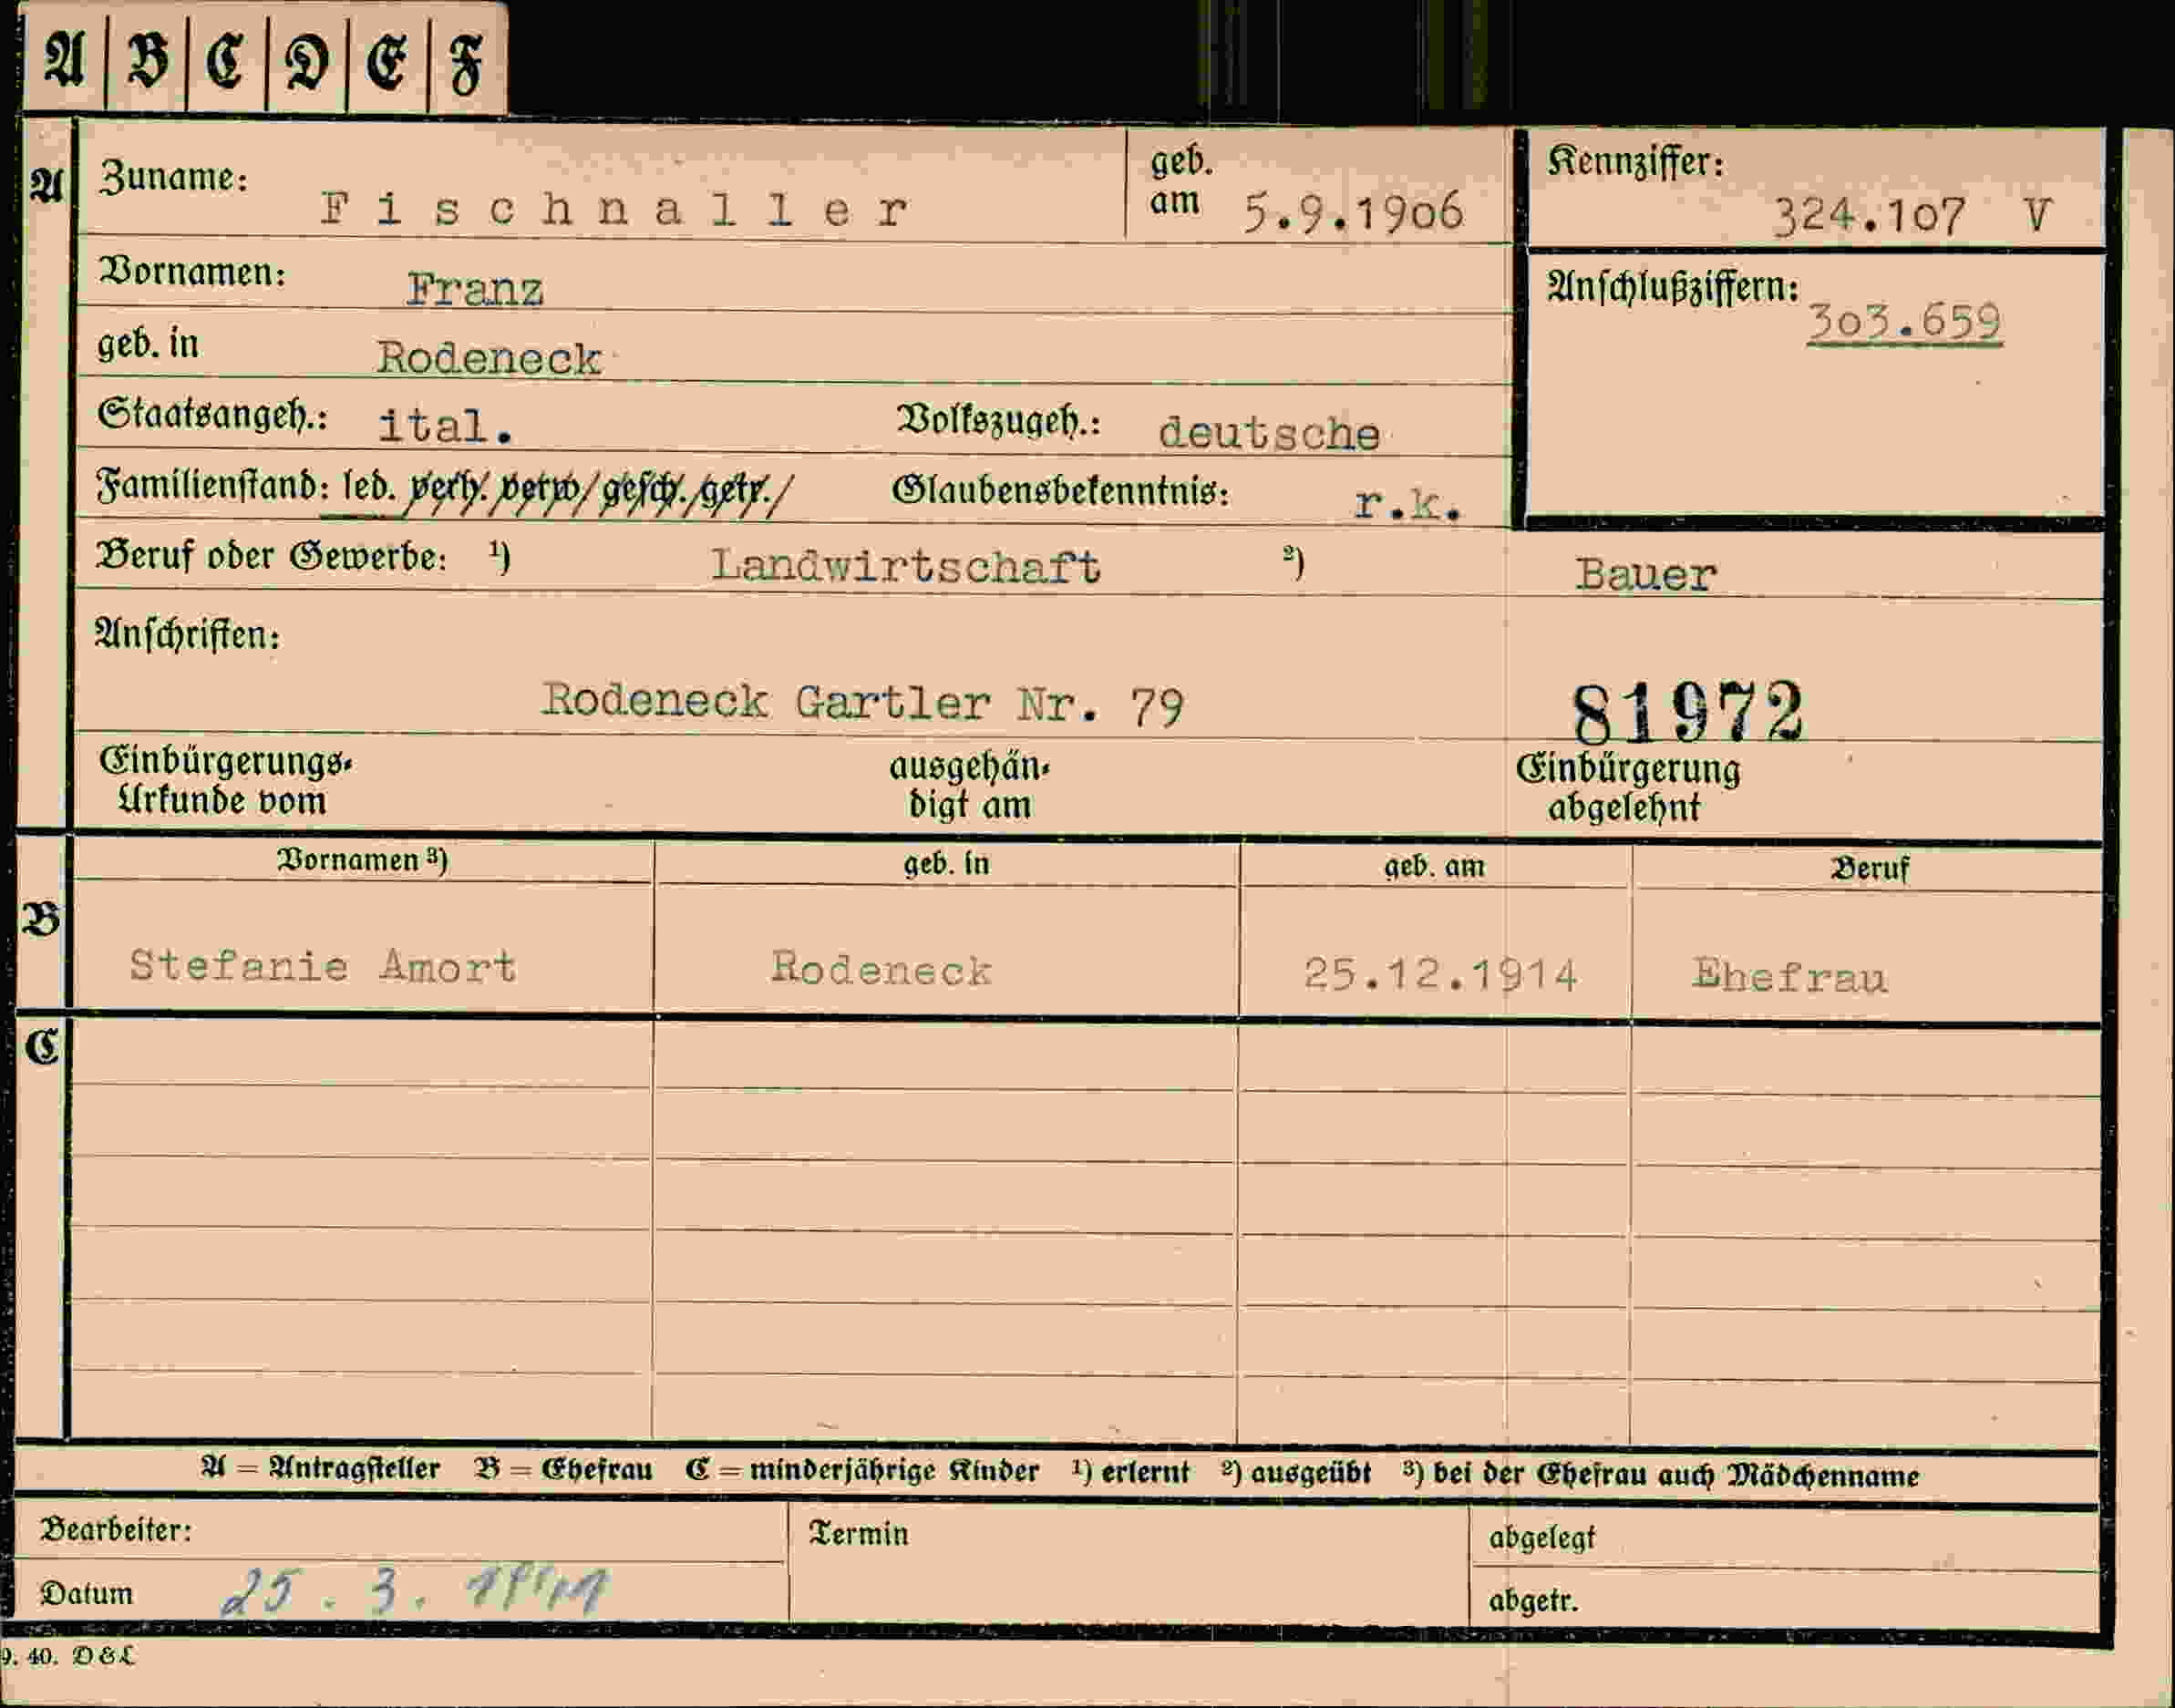 A B C D E F
A Zuname: Fischnaller geb. am 5.9.19o6 Kennziffer: 324.1o7 V
Vornamen: Franz Anschlußziffern: 3o3.659
geb. in Rodeneck
Staatsangeh.: ital. Volkszugeh.: deutsche
Familienstand: led. verh. verw. gesch. getr. Glaubensbekenntnis: r.k.
Beruf oder Gewerbe: ¹) Landwirtschaft ²) Bauer
Anschriften:
Rodeneck Gartler Nr. 79 81972
Einbürgerungs- ausgehän- Einbürgerung
Urkunde vom digt am abgelehnt
Vornamen ³) geb. in geb. am Beruf
B Stefanie Amort Rodeneck 25.12.1914 Ehefrau
C
A = Antragsteller B = Ehefrau C = minderjährige Kinder ¹) erlernt ²) ausgeübt ³) bei der Ehefrau auch Mädchenname
Bearbeiter: Termin abgelegt
Datum 25. 3. abgetr.
9. 40. D & L